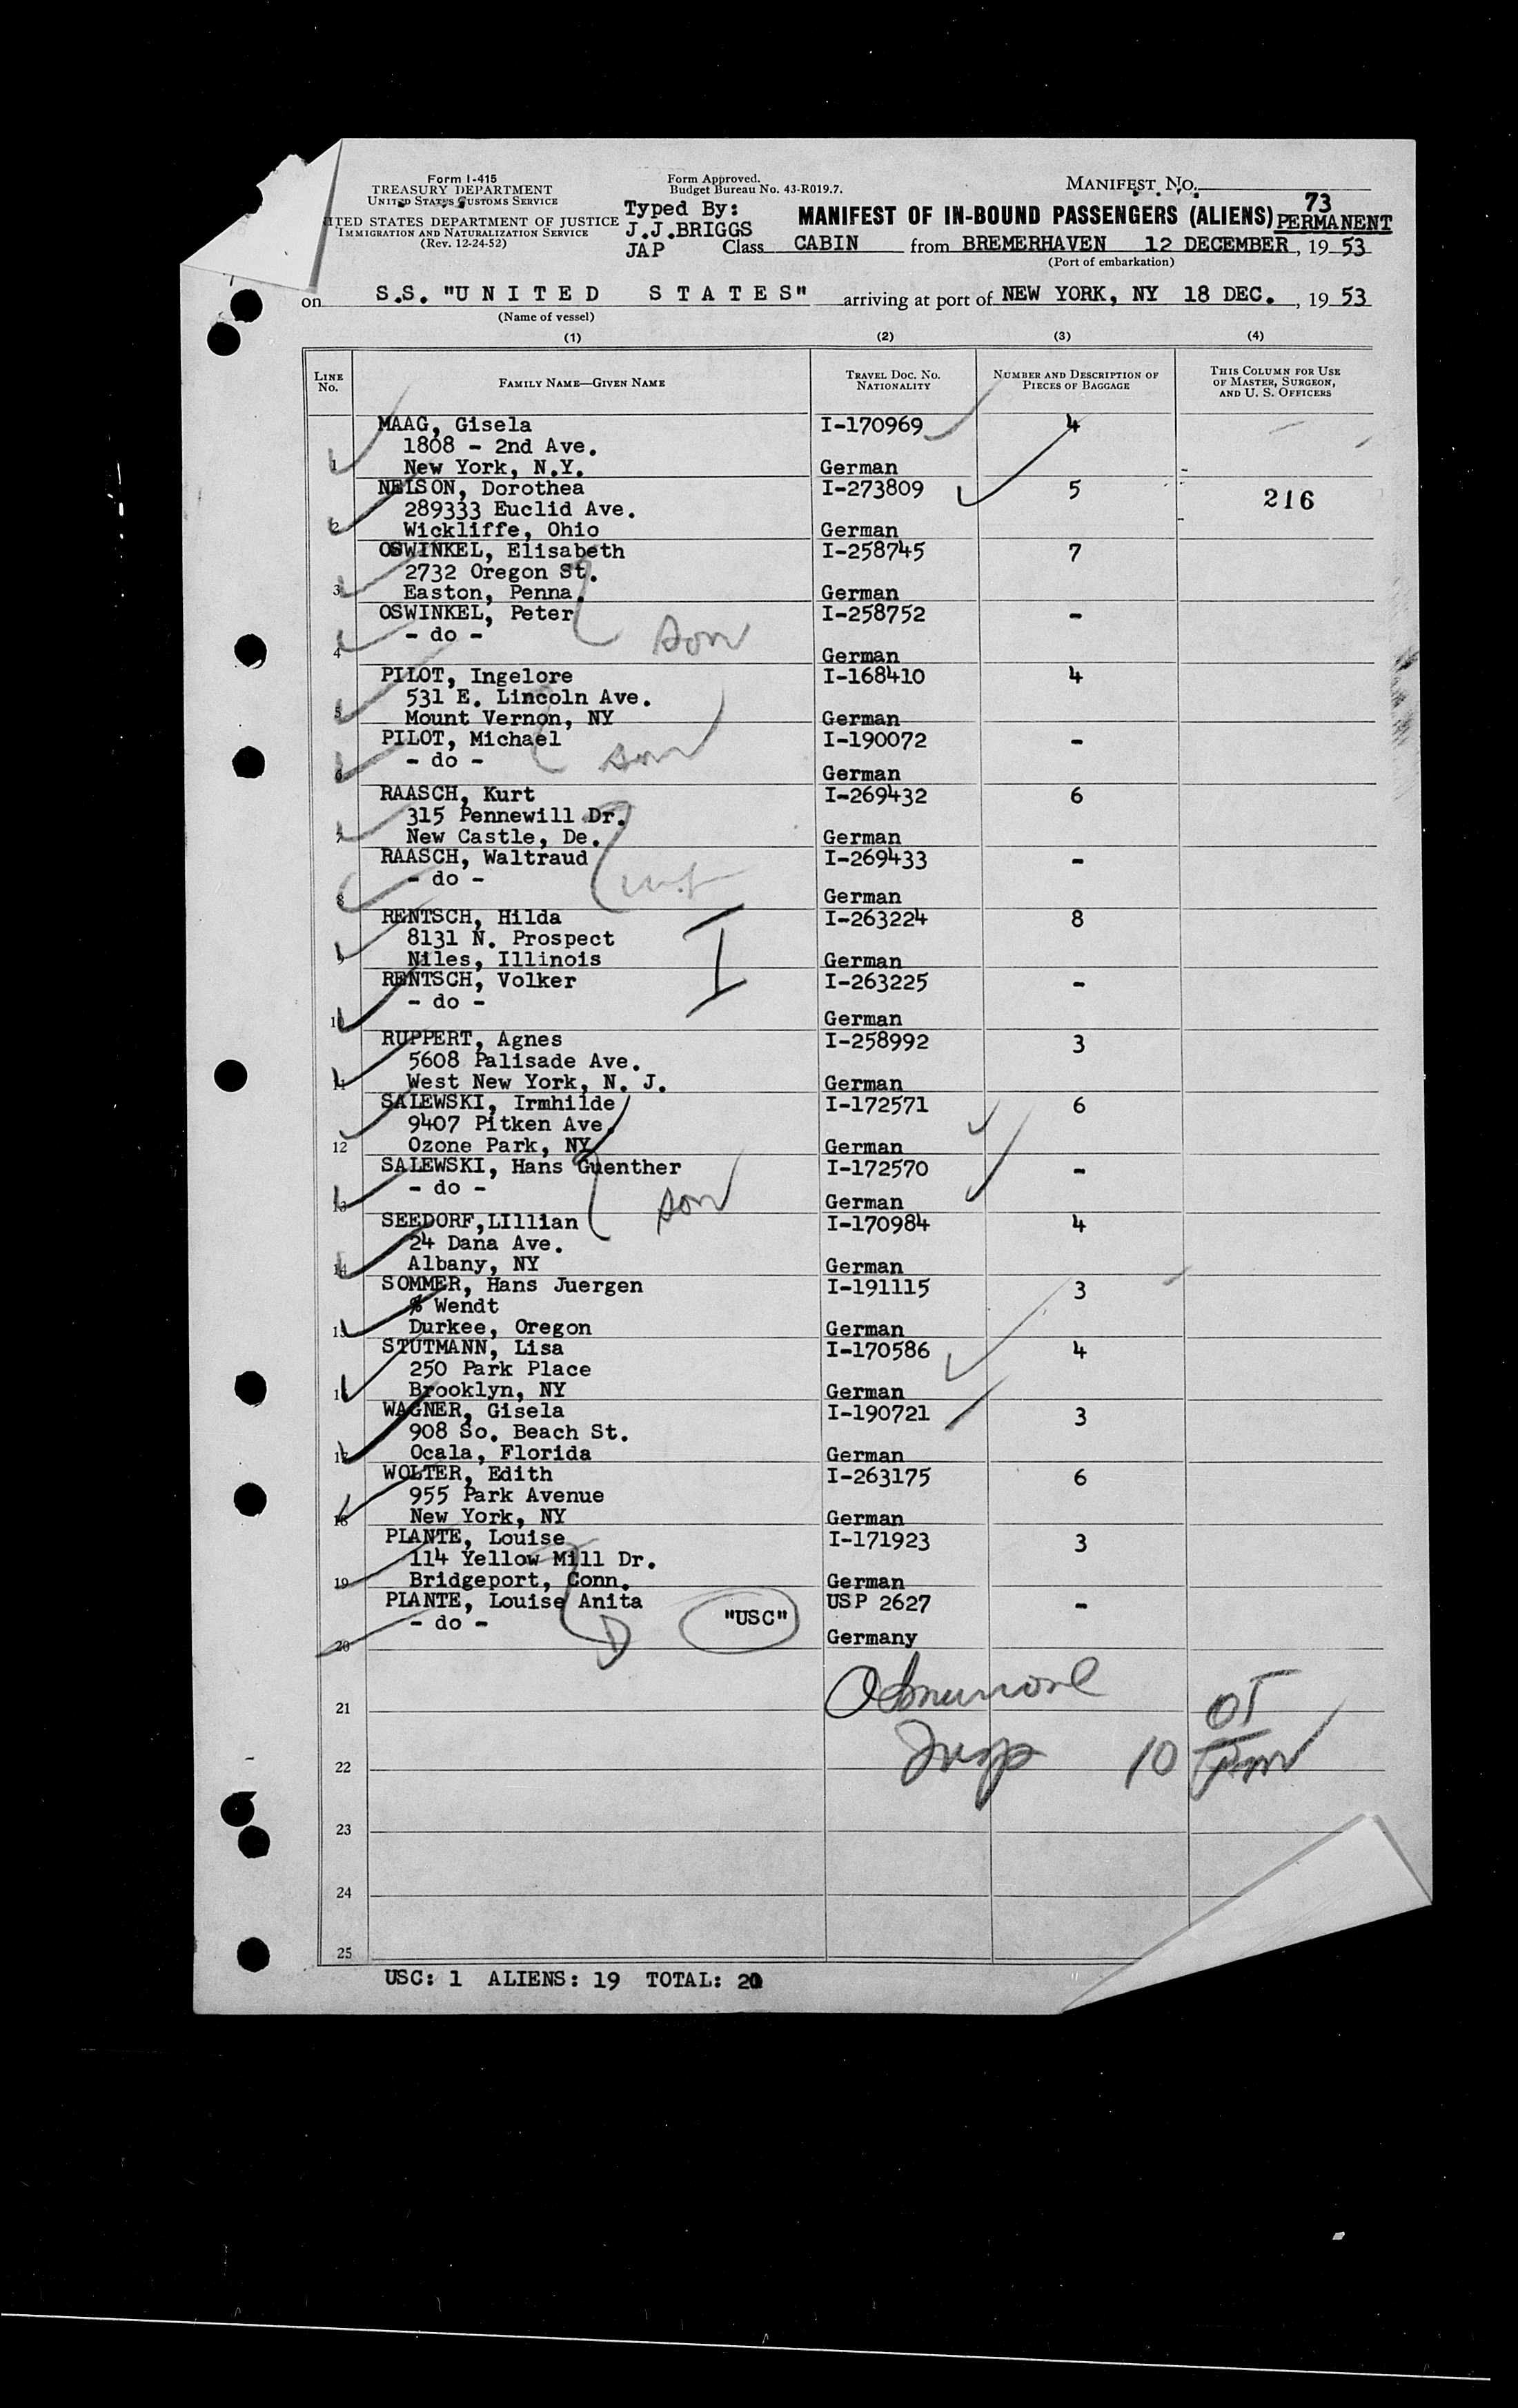 Form I-415
TREASURY DEPARTMENT
UNITED STATES CUSTOMS SERVICE
ITED STATES DEPARTMENT OF JUSTICE
IMMIGRATION AND NATURALIZATION SERVICE
(Rev. 12-24-52)
Form Approved.
Budget Bureau No. 43-R019.7.
Typed By:
J.J.BRIGGS
JAP
MANIFEST NO.
73
MANIFEST OF IN-BOUND PASSENGERS (ALIENS) PERMANENT
Class CABIN from BREMERHAVEN 12 DECEMBER, 1953
(Port of embarkation)
on S.S. "U N I T E D S T A T E S" arriving at port of NEW YORK, NY 18 DEC., 1953
(Name of vessel)
(1) (2) (3) (4)
LINE No. FAMILY NAME—GIVEN NAME TRAVEL DOC. NO. NATIONALITY NUMBER AND DESCRIPTION OF PIECES OF BAGGAGE THIS COLUMN FOR USE OF MASTER, SURGEON, AND U. S. OFFICERS
MAAG, Gisela I-170969 4
1808 - 2nd Ave.
1 New York, N.Y. German
NELSON, Dorothea I-273809 5 216
289333 Euclid Ave.
2 Wickliffe, Ohio German
OSWINKEL, Elisabeth I-258745 7
2732 Oregon St.
3 Easton, Penna. German
OSWINKEL, Peter I-258752 -
- do - son
4 German
PILOT, Ingelore I-168410 4
531 E. Lincoln Ave.
5 Mount Vernon, NY German
PILOT, Michael I-190072 -
- do - son
6 German
RAASCH, Kurt I-269432 6
315 Pennewill Dr.
7 New Castle, De. German
RAASCH, Waltraud I-269433 -
- do -
8 German
RENTSCH, Hilda I-263224 8
8131 N. Prospect I
9 Niles, Illinois German
RENTSCH, Volker I-263225 -
- do -
10 German
RUPPERT, Agnes I-258992 3
5608 Palisade Ave.
11 West New York, N. J. German
SALEWSKI, Irmhilde I-172571 6
9407 Pitken Ave.
12 Ozone Park, NY German
SALEWSKI, Hans Guenther I-172570 -
- do - son
13 German
SEEDORF,LIllian I-170984 4
24 Dana Ave.
14 Albany, NY German
SOMMER, Hans Juergen I-191115 3
% Wendt
15 Durkee, Oregon German
STUTMANN, Lisa I-170586 4
250 Park Place
16 Brooklyn, NY German
WAGNER, Gisela I-190721 3
908 So. Beach St.
17 Ocala, Florida German
WOLTER, Edith I-263175 6
955 Park Avenue
18 New York, NY German
PLANTE, Louise I-171923 3
114 Yellow Mill Dr.
19 Bridgeport, Conn. German
PLANTE, Louise Anita "USC" USP 2627 -
- do - D
20 Germany
21 OT
22 Insp 10
23
24
25
USC: 1 ALIENS: 19 TOTAL: 20